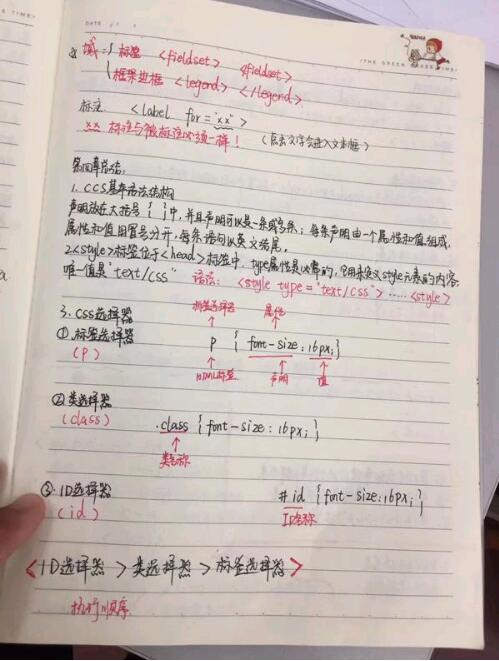 DATE
(THE GREEN GRASS TIME)
域:{ 标签 <fieldset> <fieldset>
框架边框 <legend> </legend>
标注 <label for="xx">
xx 标注与被标注必须一样! (点击文字会进入文本框)
第四章总结:
1. CCS基本语法结构
声明放在大括号{ }中,并且声明可以是一条或多条;每条声明由一个属性和值组成,
属性和值用冒号分开,每条语句以英文结尾.
2<style>标签位于<head>标签中. type属性是必需的,它用来定义style元素的内容.
唯一值是"text/css" 语法: <style type="text/css">.....<style>
3. CSS选择器 标签选择器 属性
① 标签选择器 p { font-size:16px;}
(p) HTML标签 声明 值
② 类选择器
(class) .class {font-size:16px;}
类名称
③. ID选择器 #id {font-size:16px;}
(id) ID名称
<ID选择器 > 类选择器 > 标签选择器>
执行顺序.